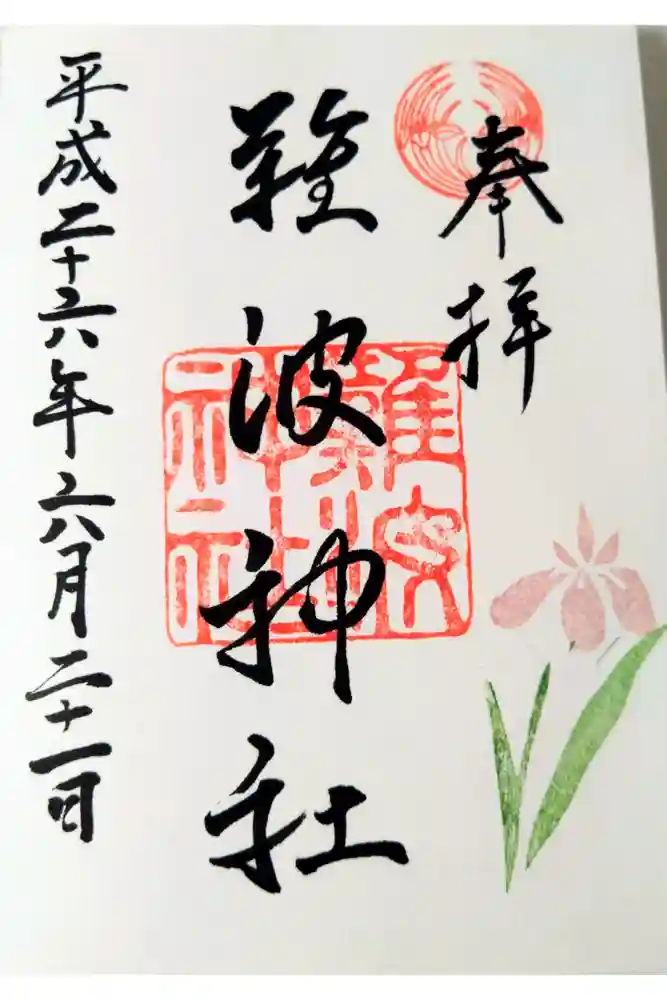 奉拝
難波神社
難波神社
平成二十六年六月二十一日